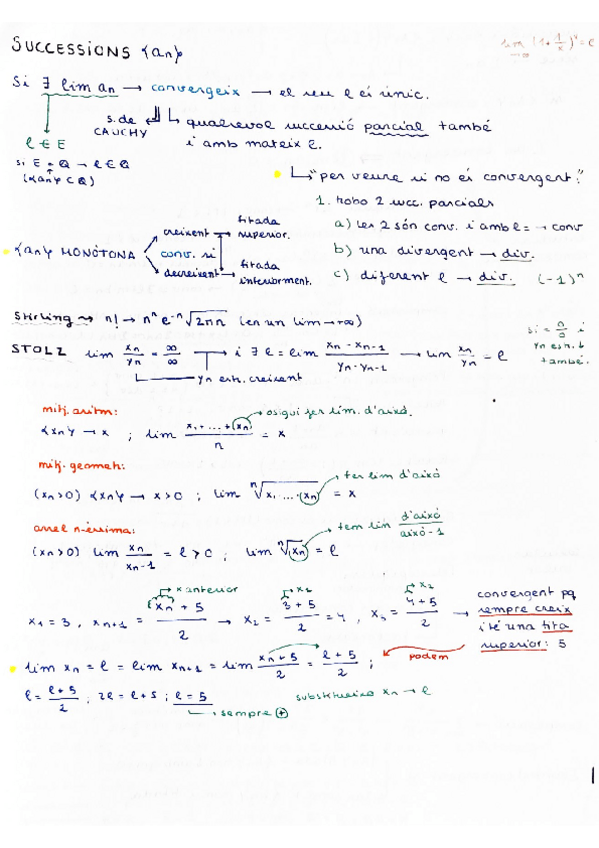 SUCCESSIONS {an}
lim (1+1/x)^x = e
x→∞
Si ∃ lim an → convergeix → el seu l és únic.
s. de CAUCHY ↳ qualsevol successió parcial també
l ∈ E
i amb mateix l.
si E = Q → l ∈ Q
({an} ⊂ Q)
↳ "per veure si no és convergent:"
1. trobo 2 succ. parcials
a) les 2 són conv. i amb l = → conv
b) una divergent → div.
c) diferent l → div. (-1)^n
{an} MONÒTONA conv. si
creixent → fitada superior.
decreixent → fitada inferiorment.
Stirling ~> n! → n^n e^-n √2πn (en un lim → ∞)
STOLZ lim xn/yn = ∞/∞ → i ∃ l = lim (xn - xn-1)/(yn - yn-1) → lim xn/yn = l
yn estr. creixent
si = 0/0 i yn estr. ↓ també.
mitj. aritm:
{xn} → x ; lim (x1 + ... + (xn))/n = x
→ osigui fer lim. d'això.
mitj. geometr:
(xn>0) {xn} → x > 0 ; lim ⁿ√x1 ... (xn) = x
→ fer lim d'això
arrel n-èssima:
(xn>0) lim xn/xn-1 = l > 0 ; lim ⁿ√(xn) = l
→ fem lim d'això/això-1
x1 = 3, xn+1 = (xn + 5)/2 → x2 = (3+5)/2 = 4, x3 = (4+5)/2 →
x anterior
x1
x2
convergent pq sempre creix i té una fita superior: 5
lim xn = l = lim xn+1 = lim (xn + 5)/2 = (l + 5)/2 ;
podem
l = (l+5)/2 ; 2l = l+5 ; l = 5
substitueixo xn → l
↳ sempre ⊕
1